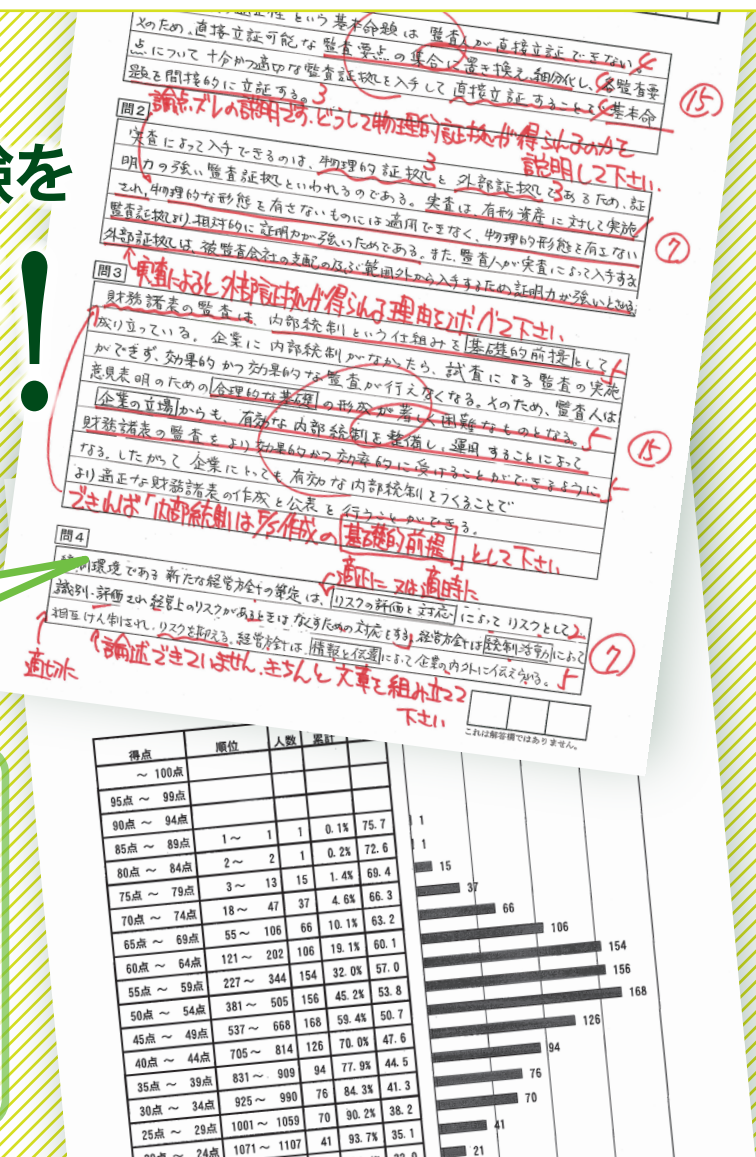 験を
！
という基本命題は 監査人が直接立証できない。4
そのため、直接立証可能な監査要点の集合に置き換え、細分化し、各監査要
点について十分かつ適切な監査証拠を入手して直接立証することで基本命
題を間接的に立証する。3
⑮
問2
論点ズレの説明です。どうして物理的証拠が得られるのかを
説明して下さい。
実査によって入手できるのは、物理的証拠と外部証拠であるため、証
明力の強い監査証拠といわれるのである。実査は、有形資産に対して実施
され、物理的な形態を有さないものには適用できなく、物理的形態を有さない
監査証拠より、相対的に証明力が強いためである。また、監査人が実査によって入手する
外部証拠は、被監査会社の支配の及ぶ範囲外から入手するため証明力が強いとされる。
⑦
実査によると外部証拠が得られる理由を述べて下さい
問3
財務諸表の監査は、内部統制という仕組みを基礎的前提として5
成り立っている。企業に内部統制がなかったら、試査による監査の実施
ができず、効果的かつ効果的な監査が行えなくなる。そのため、監査人は
意見表明のための合理的な基礎の形成が著しく困難なものとなる。5
企業の立場からも、有効な内部統制を整備し、運用することによって
財務諸表の監査をより効果的かつ効率的に受けることができるように5
なる。したがって企業にとっても有効な内部統制をつくることで
より適正な財務諸表の作成と公表を行うことができる。
⑮
できれば「内部統制はF/S作成の基礎的前提」として下さい
問4
適正に又は適時に
環境である新たな経営方針の策定は、リスクの評価と対応によってリスクとして2
識別・評価され経営上のリスクがあるときはなくすための対応をする。経営方針は統制活動によって
相互けん制され、リスクを抑える。経営方針は、情報と伝達によって企業の内外に伝えられる。5
⑦
適切に
論述できていません。きちんと文章を組み立てて
下さい
これは解答欄ではありません。
得点 順位 人数 累計
～ 100点
95点 ～ 99点
90点 ～ 94点
85点 ～ 89点 1～ 1 1 0.1% 75.7 1
80点 ～ 84点 2～ 2 1 0.2% 72.6 1
75点 ～ 79点 3～ 13 15 1.4% 69.4 15
70点 ～ 74点 18～ 47 37 4.6% 66.3 37
65点 ～ 69点 55～ 106 66 10.1% 63.2 66
60点 ～ 64点 121～ 202 106 19.1% 60.1 106
55点 ～ 59点 227～ 344 154 32.0% 57.0 154
50点 ～ 54点 381～ 505 156 45.2% 53.8 156
45点 ～ 49点 537～ 668 168 59.4% 50.7 168
40点 ～ 44点 705～ 814 126 70.0% 47.6 126
35点 ～ 39点 831～ 909 94 77.9% 44.5 94
30点 ～ 34点 925～ 990 76 84.3% 41.3 76
25点 ～ 29点 1001～ 1059 70 90.2% 38.2 70
24点 1071～ 1107 41 93.7% 35.1 41
21